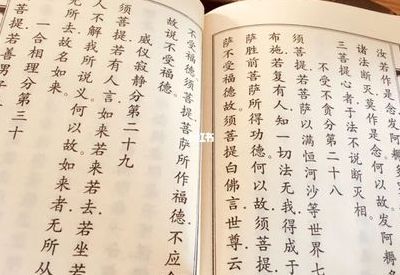 汝若作是念.发阿耨多
诸法断灭.莫作是念.何
三菩提心者.于法不说断灭相.
不受不贪分第二十八
须菩提.若菩萨以满恒河沙等世界
布施.若复有人.知一切法无我.得成于
萨胜前菩萨所得功德.何以故.须菩提.
萨不受福德故.须菩提白佛言.世尊.云
不受福德.须菩提.菩萨所作福德.不应
故说不受福德.
威仪寂静分第二十九
须菩提.若有人言.如来若来若去.若坐若
人不解我所说义.何以故.如来者.无所从
无所去.故名如来.
一合相理分第三十
须菩提.若善男子